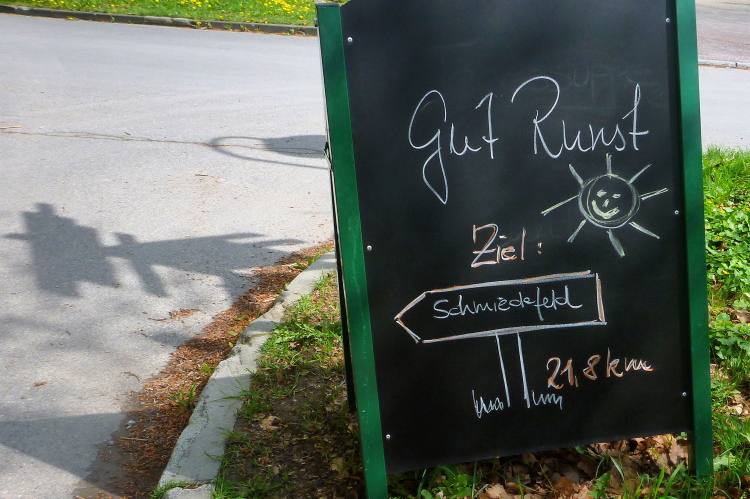 Gut Runst
Ziel:
Schmiedefeld
21,8 km